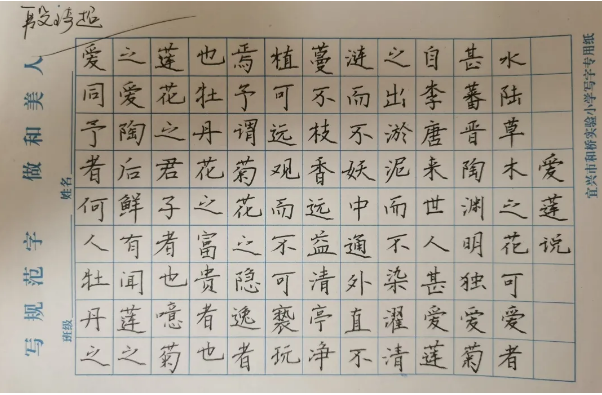 宜兴市和桥实验小学写字专用纸
爱莲说
水陆草木之花可爱者
甚蕃晋陶渊明独爱菊
自李唐来世人甚爱莲
之出淤泥而不染濯清
涟而不妖中通外直不
蔓不枝香远益清亭净
植可远观而不可亵玩
焉予谓菊花之隐逸者
也牡丹花之富贵者也
莲花之君子者也噫菊
之爱陶后鲜有闻莲之
爱同予者何人牡丹之
班级 姓名
写规范字 做和美人